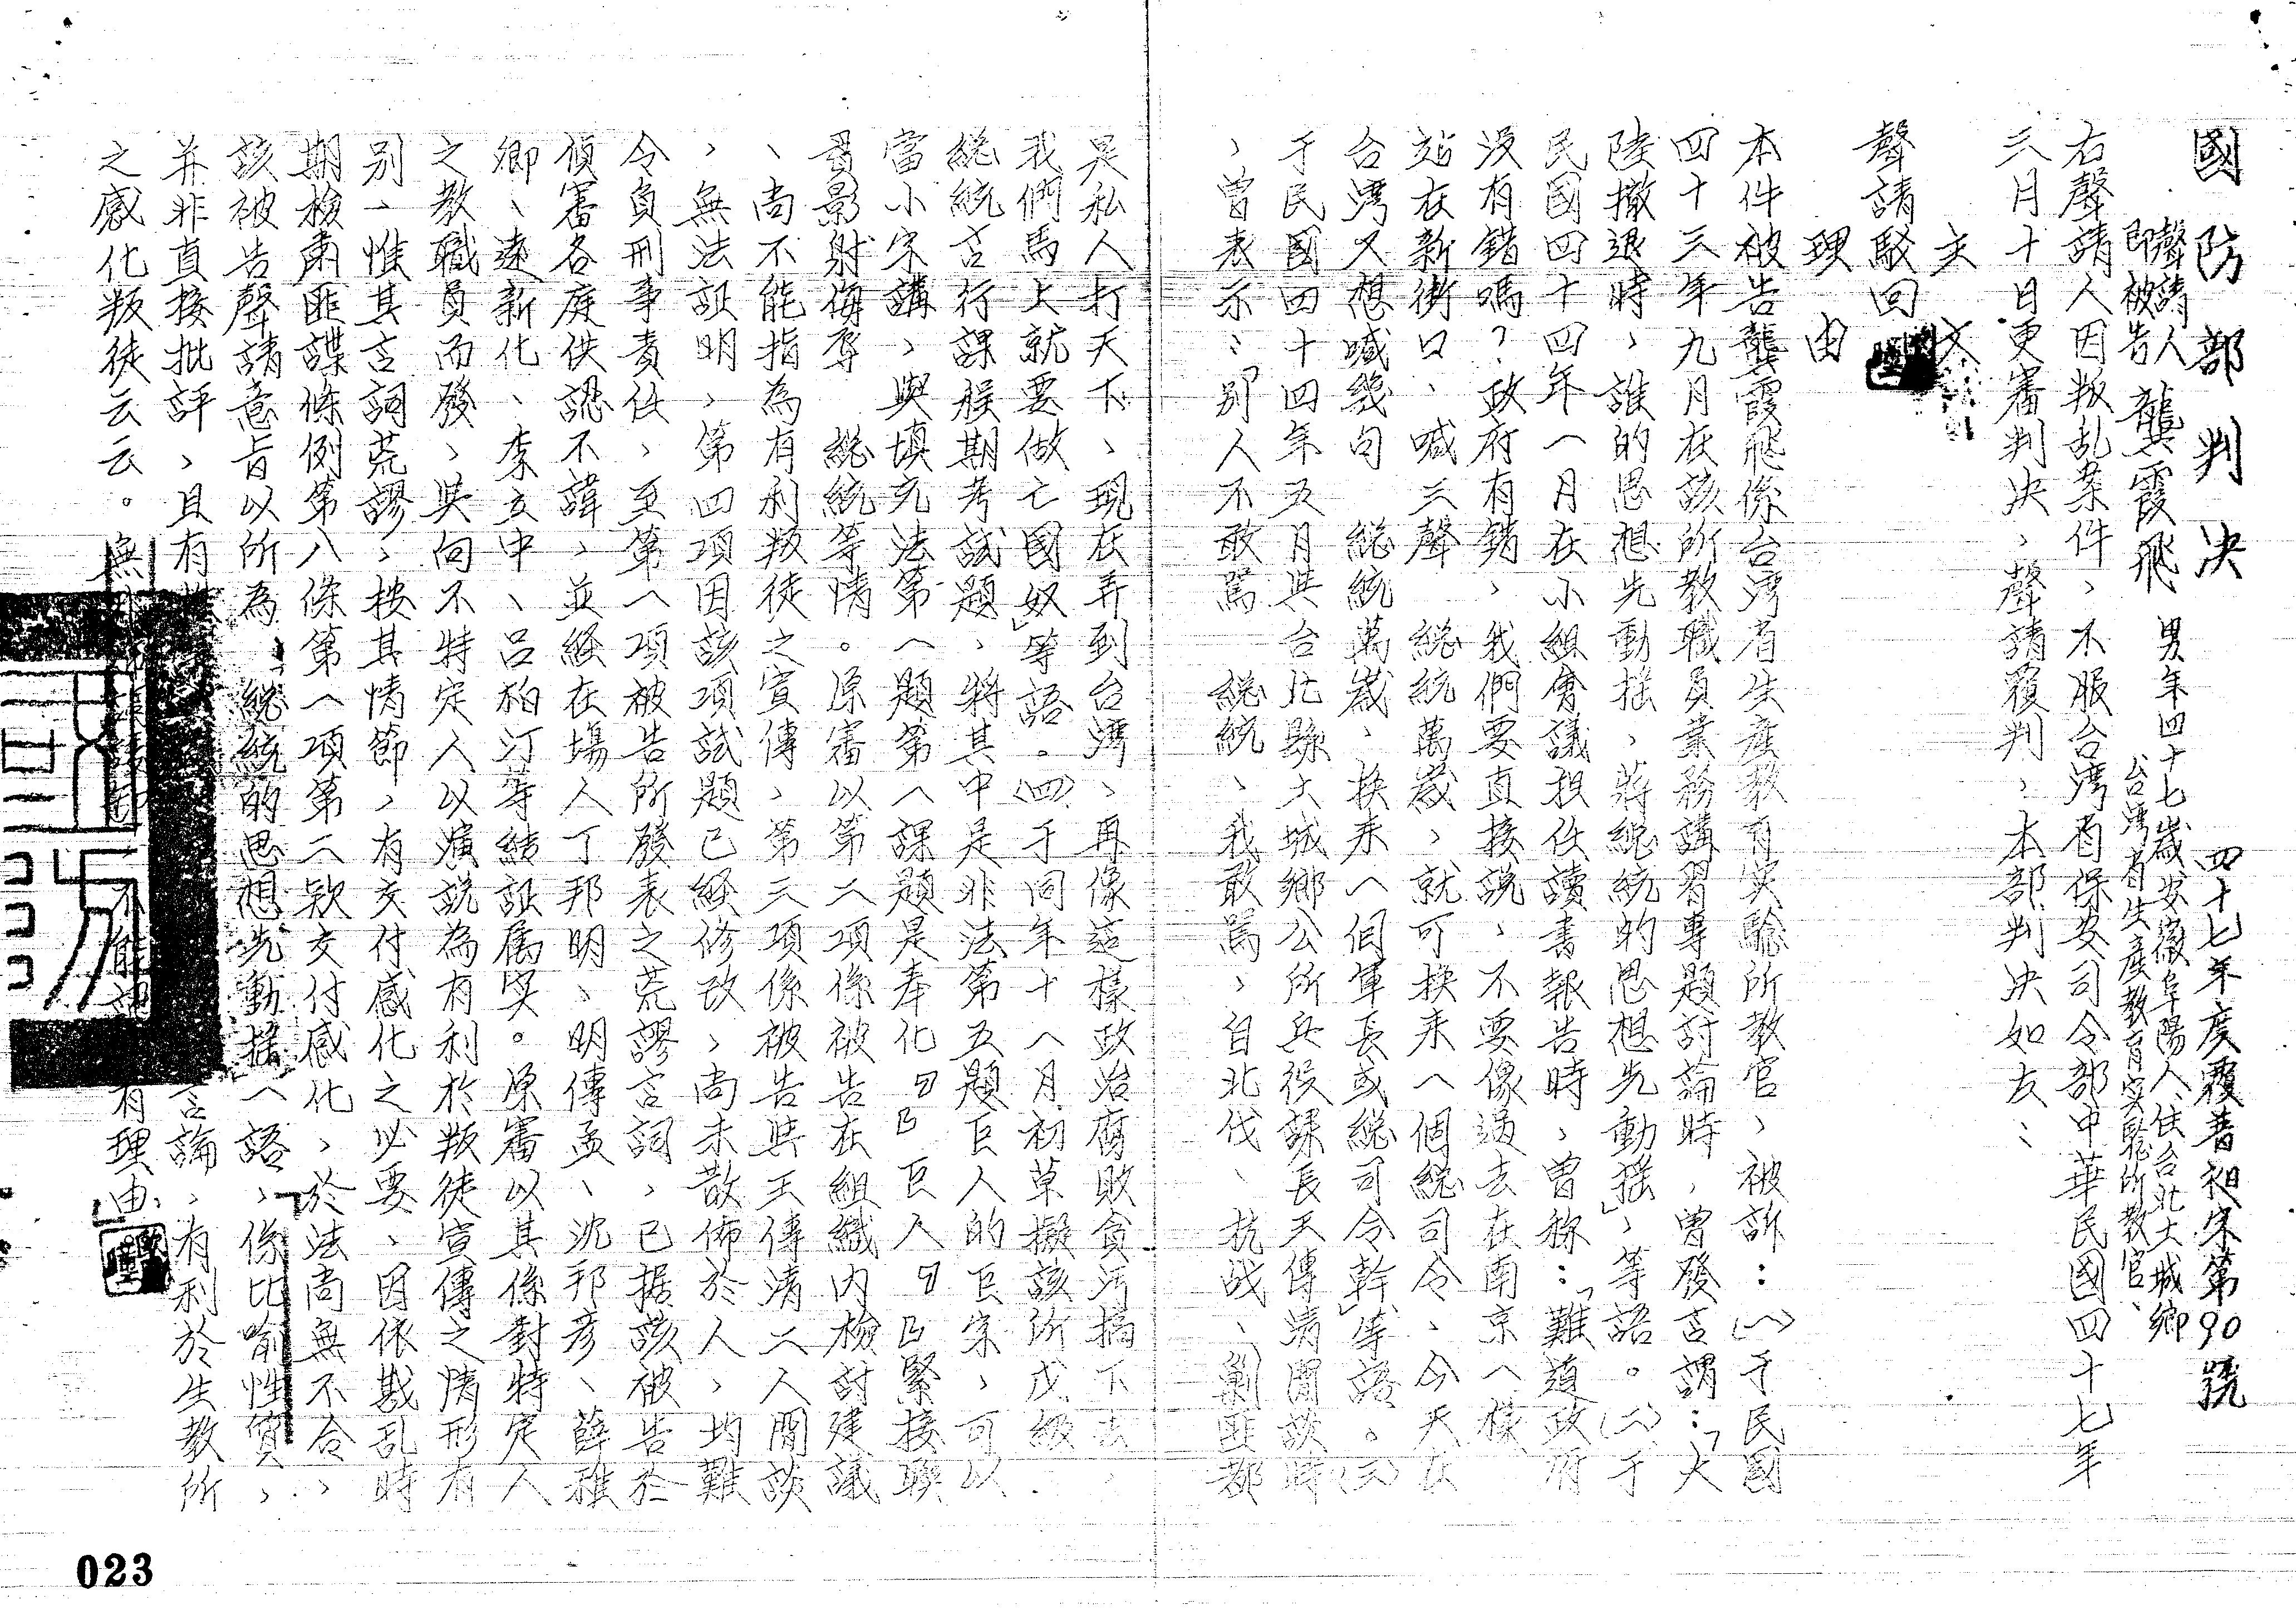 國防部判決　四十七年度覆普裎字第90號
聲請人
即被告　龔霞飛　男年四十七歲安徽阜陽人住台北土城鄉
台灣省生產教育實驗所教官、
右聲請人因叛乱案件、不服台灣省保安司令部中華民國四十七年
三月十日更審判決、聲請覆判、本部判決如左：
主文
聲請駁回
理由
本件被告龔霞飛係台灣省生產教育实驗所教官、被訴：(一)于民國
四十三年九月在該所教職員業務講習專題討論時，曾發言謂：「大
陸撤退時，誰的思想先動搖、蔣總統的思想先動搖」、等語。(二)于
民國四十四年一月在小組會議担任讀書報告時、曾称：「難道政府
没有錯嗎？政府有錯、我們要直接說、不要像過去在南京一樣
站在新街口、喊三聲　總統萬歲，就可換來一個總司令、今天在
台灣又想喊幾句　總統萬歲、換來一個軍長或總司令幹」等語。(三)
于民國四十四年五月與台北縣土城鄉公所兵役課長王傳清閒談時
，曾表示：「別人不敢罵　總統、我敢罵，自北伐、抗战、剿匪都
是私人打天下、現在弄到台灣、再像這樣政治腐敗貪污搞下去，
我們馬上就要做亡國奴」等語。(四)于同年十一月初草擬該所戊級
總統言行課模期考試題、將其中是非法第五題巨人的巨字，可以
當小字講，與填充法第一題第一課題是奉化　巨人　緊接聯
貫影射侮辱　總統等情。原審以第二項係被告在組織內檢討建議
、尚不能指為有利叛徒之宣傳、第三項係被告與王傳清二人閒談
，無法証明，第四項因該項試題已經修改，尚未散佈於人，均難
令負刑事責任、至第一項被告所發表之荒謬言詞，已据該被告於
偵審各庭供認不諱，並經在場人丁邦明、明傳孟、沈邦彥、薛雅
卿、遠新化、李立中、呂柏汀等結証屬實。原審以其係對特定人
之教職員而發，與向不特定人以演說為有利於叛徒宣傳之情形有
別，惟其言詞荒謬，按其情節，有交付感化之必要、因依戡乱時
期檢肅匪諜條例第八條第一項第二欵交付感化，於法尚無不合，
該被告聲請意旨以所為「總統的思想先動搖」一語，係比喻性質，
并非直接批評，且有　言論，有利於生教所
之感化叛徒云云。　有理由
023